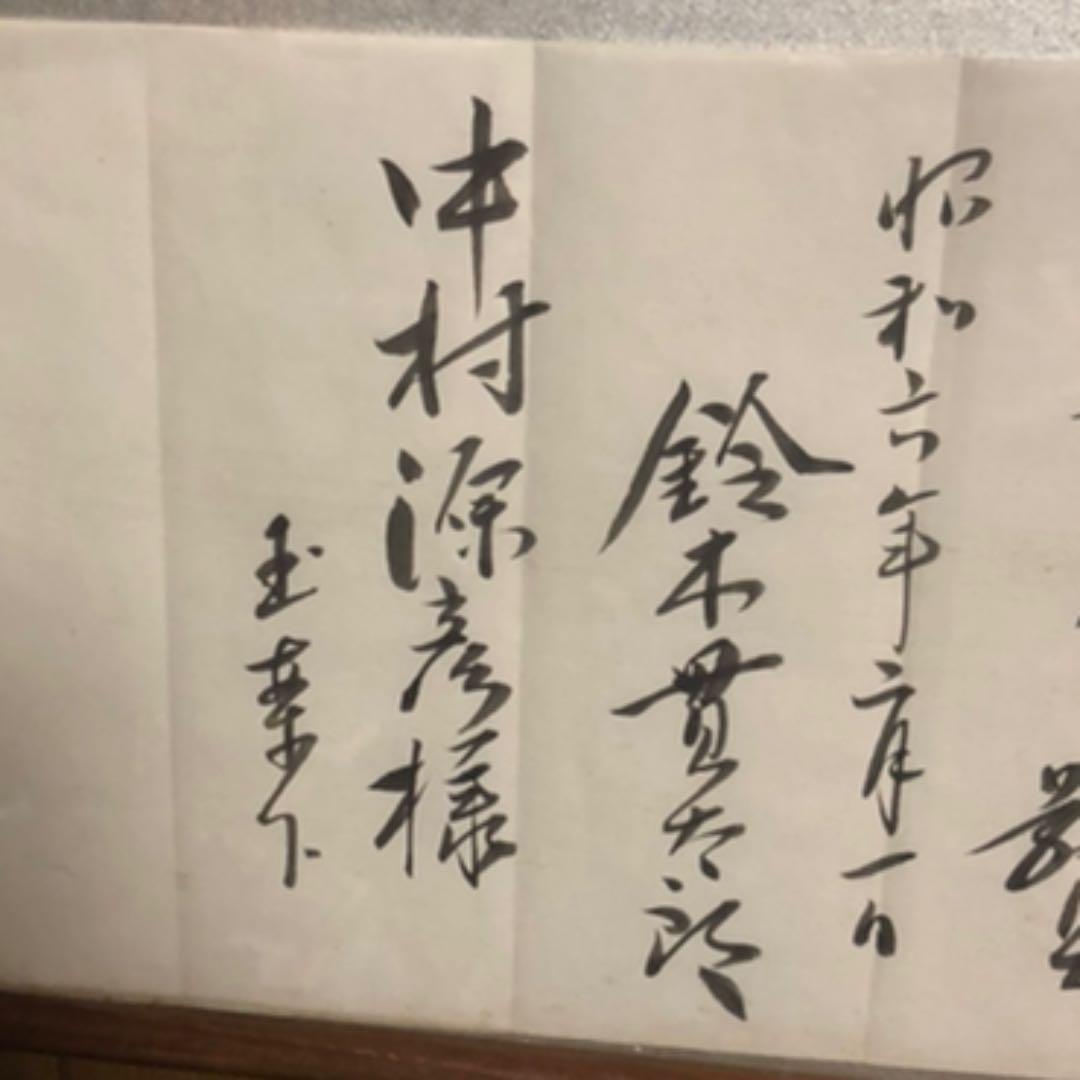 昭和六年二月一日
鈴木貫太郎
中村源彦様
玉葉下